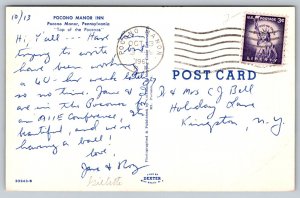 10/13
POCONO MANOR INN
Pocono Manor, Pennsylvania
"Top of the Poconos"
Hi, Y'all --- Hard
trying to write but
have been work
a 40-hr week late
so no time. Jane & I
are in the Poconos for
an AIIE Conference, It's
beautiful, and we're
having a ball!
Love,
Jane & Roy
POCONO MANOR
OCT
196
PA.
U.S. POSTAGE
3¢
LIBERTY
POST CARD
D & Mrs C J Bell
Holiday Lane
Kingston, N.Y.
DEXTER